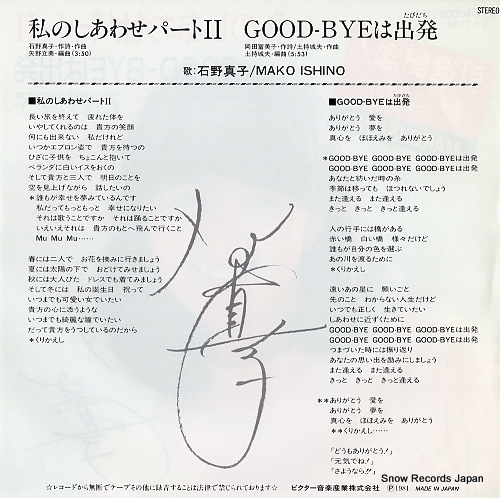 STEREO
私のしあわせパートII　GOOD-BYEは出発
たびだち
石野真子・作詩・作曲
矢野立美・編曲(3:50)
岡田冨美子・作詩/土持城夫・作曲
土持城夫・編曲(5:53)
歌：石野真子/MAKO ISHINO
■私のしあわせパートII
長い旅を終えて　疲れた体を
いやしてくれるのは　貴方の笑顔
何にも出来ない　私だけれど
いつかエプロン姿で　貴方を待つの
ひざに子供を　ちょこんと抱いて
ベランダに白いイスをおくの
そして貴方と三人で　明日のことを
空を見上げながら　話したいの
＊誰もが幸せを夢みているんです
私だってもっともっと　幸せになりたい
それは歌うことですか　それは踊ることですか
いえいえそれは　貴方のもとへ飛んで行くこと
Mu Mu Mu……
春には二人で　お花を摘みに行きましょう
夏には太陽の下で　おどけてみせましょう
秋には大人びた　ドレスでも着てみましょう
そして冬には　私の誕生日　祝って
いつまでも可愛い女でいたい
貴方の心に添うような
いつまでも綺麗な瞳でいたい
だって貴方をうつしているのだから
＊くりかえし
■GOOD-BYEは出発
たびだち
ありがとう　愛を
ありがとう　夢を
真心を　ほほえみを　ありがとう
＊GOOD-BYE GOOD-BYE GOOD-BYEは出発
GOOD-BYE GOOD-BYE GOOD-BYEは出発
あなたと紡いだ時の糸
季節は移っても　ほつれないでしょう
また逢える　また逢える
きっと　きっと　きっと逢える
人の行手には橋がある
赤い橋　白い橋　様々だけど
誰もが自分の色を選ぶ
あの川を渡るために
＊くりかえし
遠いあの星に　願いごと
先のこと　わからない人生だけど
いつでも正しく　生きていたい
しあわせに近ずくために
GOOD-BYE GOOD-BYE GOOD-BYEは出発
GOOD-BYE GOOD-BYE GOOD-BYEは出発
つまづいた時には振り返り
あなたの思い出を励みにしましょう
また逢える　また逢える
きっと　きっと　きっと逢える
＊＊ありがとう　愛を
ありがとう　夢を
真心を　ほほえみを　ありがとう
＊＊くりかえし……
「どうもありがとう！」
「元気でね！」
「さようなら!!」
☆レコードから無断でテープその他に録音することは法律で禁じられております☆
ビクター音楽産業株式会社
Ⓟ1981 MADE IN JAPAN
Snow Records Japan
(C)Copyright